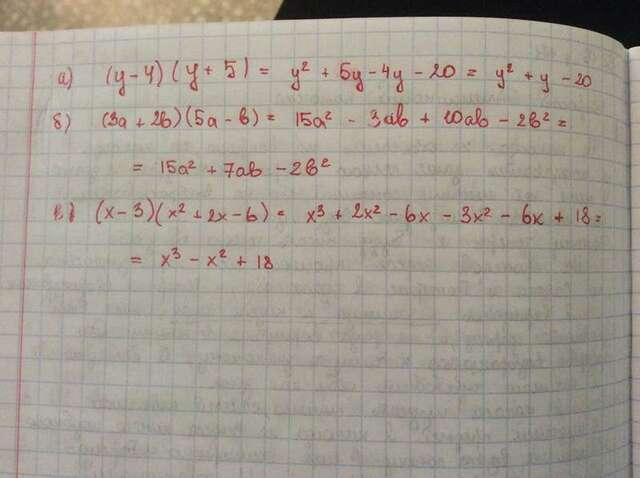 а) (y-4)(y+5) = y² + 5y - 4y - 20 = y² + y - 20
б) (3a + 2b)(5a - b) = 15a² - 3ab + 10ab - 2b² =
= 15a² + 7ab - 2b²
в) (x-3)(x² + 2x - 6) = x³ + 2x² - 6x - 3x² - 6x + 18 =
= x³ - x² + 18